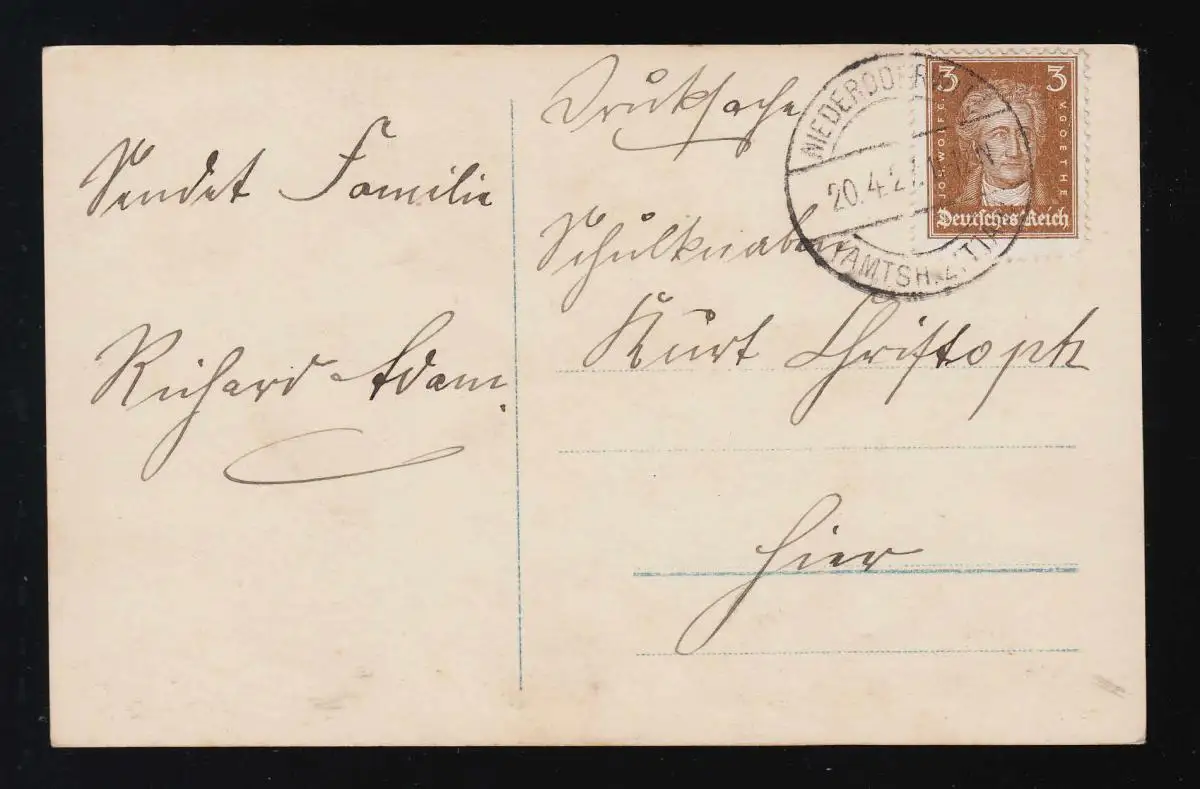 Sendet Familie
Richard Adam.
Drucksache
Schulknaben
Kurt Christoph
hier
3 3
JOH. WOLFG.
V. GOETHE
Deutsches Reich
20.4.27
(AMTSH. ZITTAU)